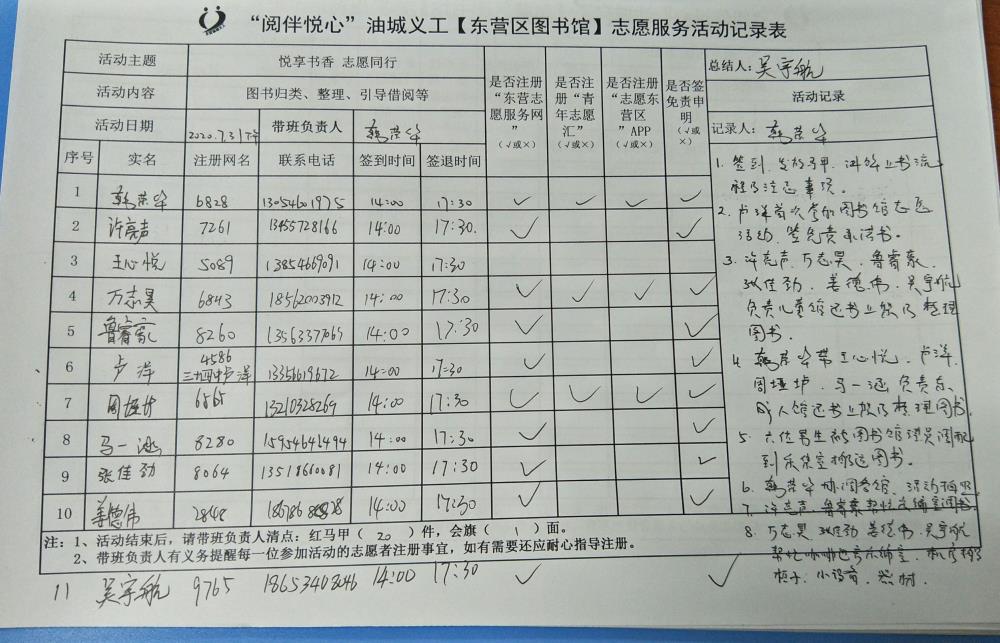 “阅伴悦心”油城义工【东营区图书馆】志愿服务活动记录表
活动主题 悦享书香 志愿同行 是否注册“东营志愿服务网”（√或×） 是否注册“青年志愿汇”（√或×） 是否注册“志愿东营区”APP（√或×） 是否签免责申明（√或×） 总结人：吴宇航
活动内容 图书归类、整理、引导借阅等 活动记录
活动日期 2020.7.31下午 带班负责人 韩荣华 记录人：韩荣华
序号 实名 注册网名 联系电话 签到时间 签退时间
1 韩荣华 6828 13054601975 14:00 17:30 ✓ ✓ ✓ ✓
2 许亮声 7261 13455728166 14:00 17:30. ✓ ✓
3 王心悦 5089 13854669091 14:00 17:30
4 万志昊 6843 18562003912 14:00 17:30 ✓ ✓ ✓ ✓
5 鲁睿豪 8260 13563377069 14:00 17:30 ✓ ✓
6 卢洋 4586 三九四中卢洋 13356619672 14:00 17:30 ✓ ✓
7 周垭圹 6565 13210328269 14:00 17:30 ✓ ✓ ✓ ✓
8 马一涵 8280 15954641494 14:00 17:30 ✓ ✓
9 张佳劲 8064 13518660081 14:00 17:30 ✓ ✓
10 姜德伟 2848 14:00 17:30 ✓ ✓
1、签到、发放马甲、讲解上书流
程及注意事项。
2、卢洋首次参加图书馆志愿
活动，签免责承诺书。
3、许亮声、万志昊、鲁睿豪、
张佳劲、姜德伟、吴宇航
负责儿童馆还书上架及整理
图书。
4、韩荣华带王心悦、卢洋、
周垭圹、马一涵负责东
成人馆还书上架及整理图书。
5、六位男生被图书馆馆员调配
到乐柴室挪运图书。
6、韩荣华协调各馆、活动拍照
7、许亮声、鲁睿豪
8、万志昊、张佳劲、姜德伟、吴宇航
注：1、活动结束后，请带班负责人清点：红马甲（ 20 ）件，会旗（ 1 ）面。
2、带班负责人有义务提醒每一位参加活动的志愿者注册事宜，如有需要还应耐心指导注册。
11 吴宇航 9765 18653408046 14:00 17:30 ✓ ✓